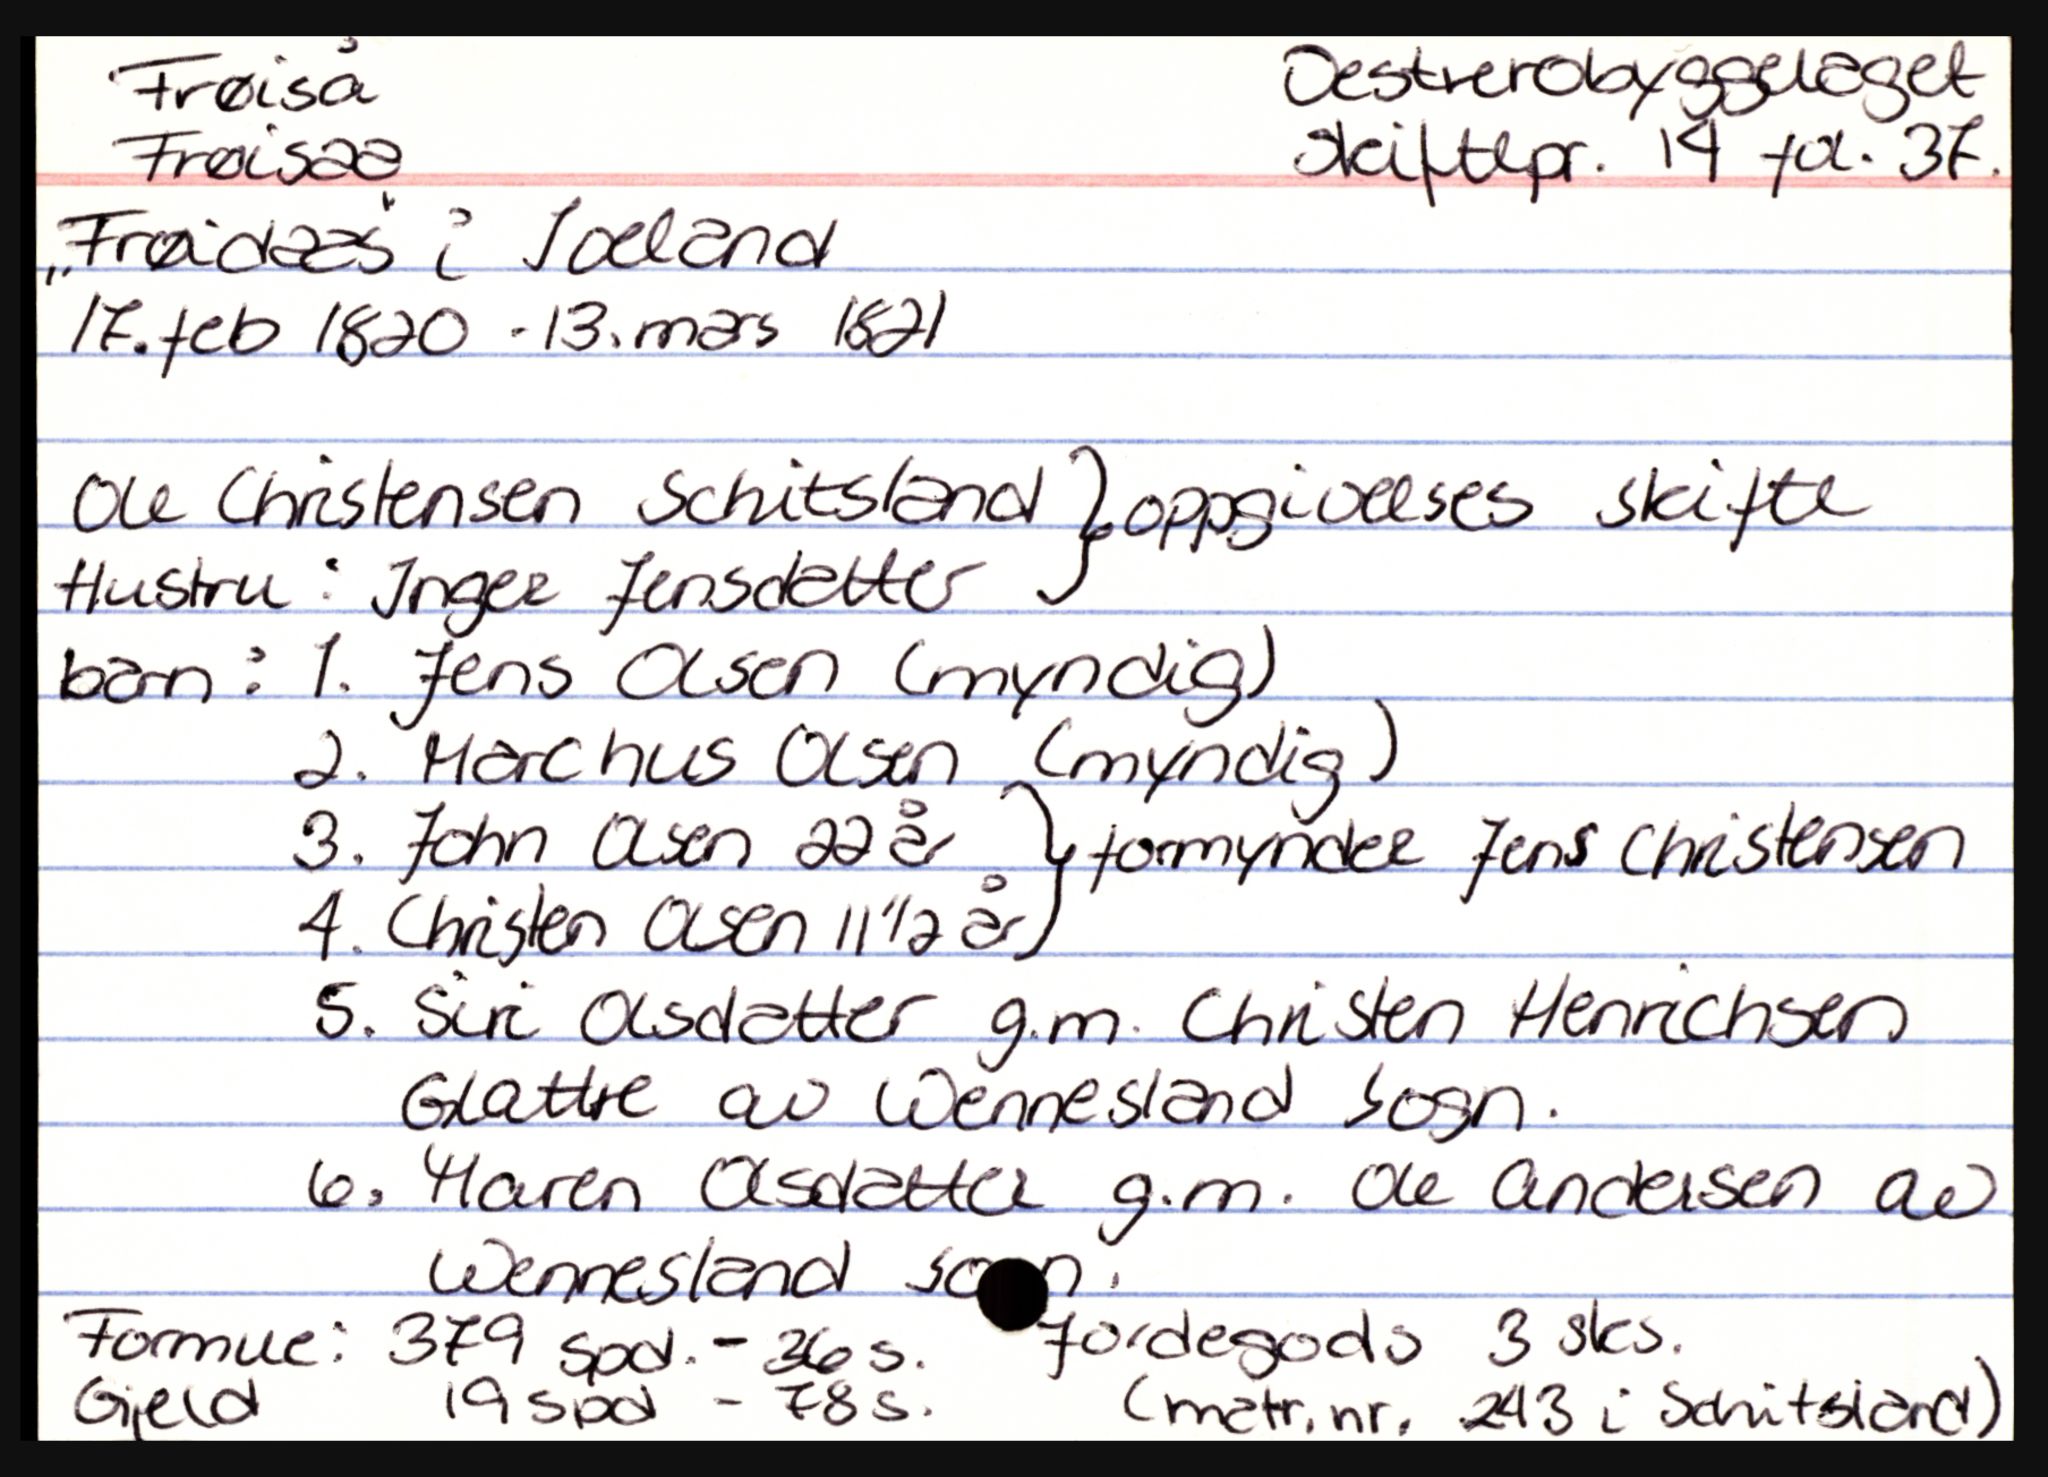 Frøiså
Oestrerobyggelaget
Frøisaa
Skiftepr. 14 fol. 37.
„Frøidaas" i Iveland
17. feb 1820 - 13. mars 1821
Ole Christensen Schitsland } oppgivelses skifte
Hustru: Inger Jensdatter
barn: 1. Jens Olsen (myndig)
2. Marchus Olsen (myndig)
3. John Olsen 22 år } formynder Jens Christensen
4. Christen Olsen 11 1/2 år
5. Siri Olsdatter g.m. Christen Henrichsen
Glattre av Wennesland sogn.
6. Maren Olsdatter g.m. Ole Andersen av
Wennesland sogn.
Formue: 379 spd. - 36 s. Jordegods 3 sks.
Gjeld 19 spd - 78 s. (matr. nr. 243 i Schitsland)